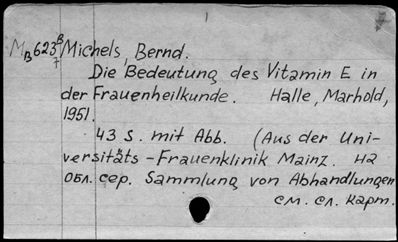 MB623 B/7 Michels, Bernd.
Die Bedeutung des Vitamin E in
der Frauenheilkunde. Halle, Marhold,
1951.
43 S. mit Abb. (Aus der Uni-
versitäts-Frauenklinik Mainz. на
обл. сер. Sammlung von Abhandlungen
см. сл. карт.